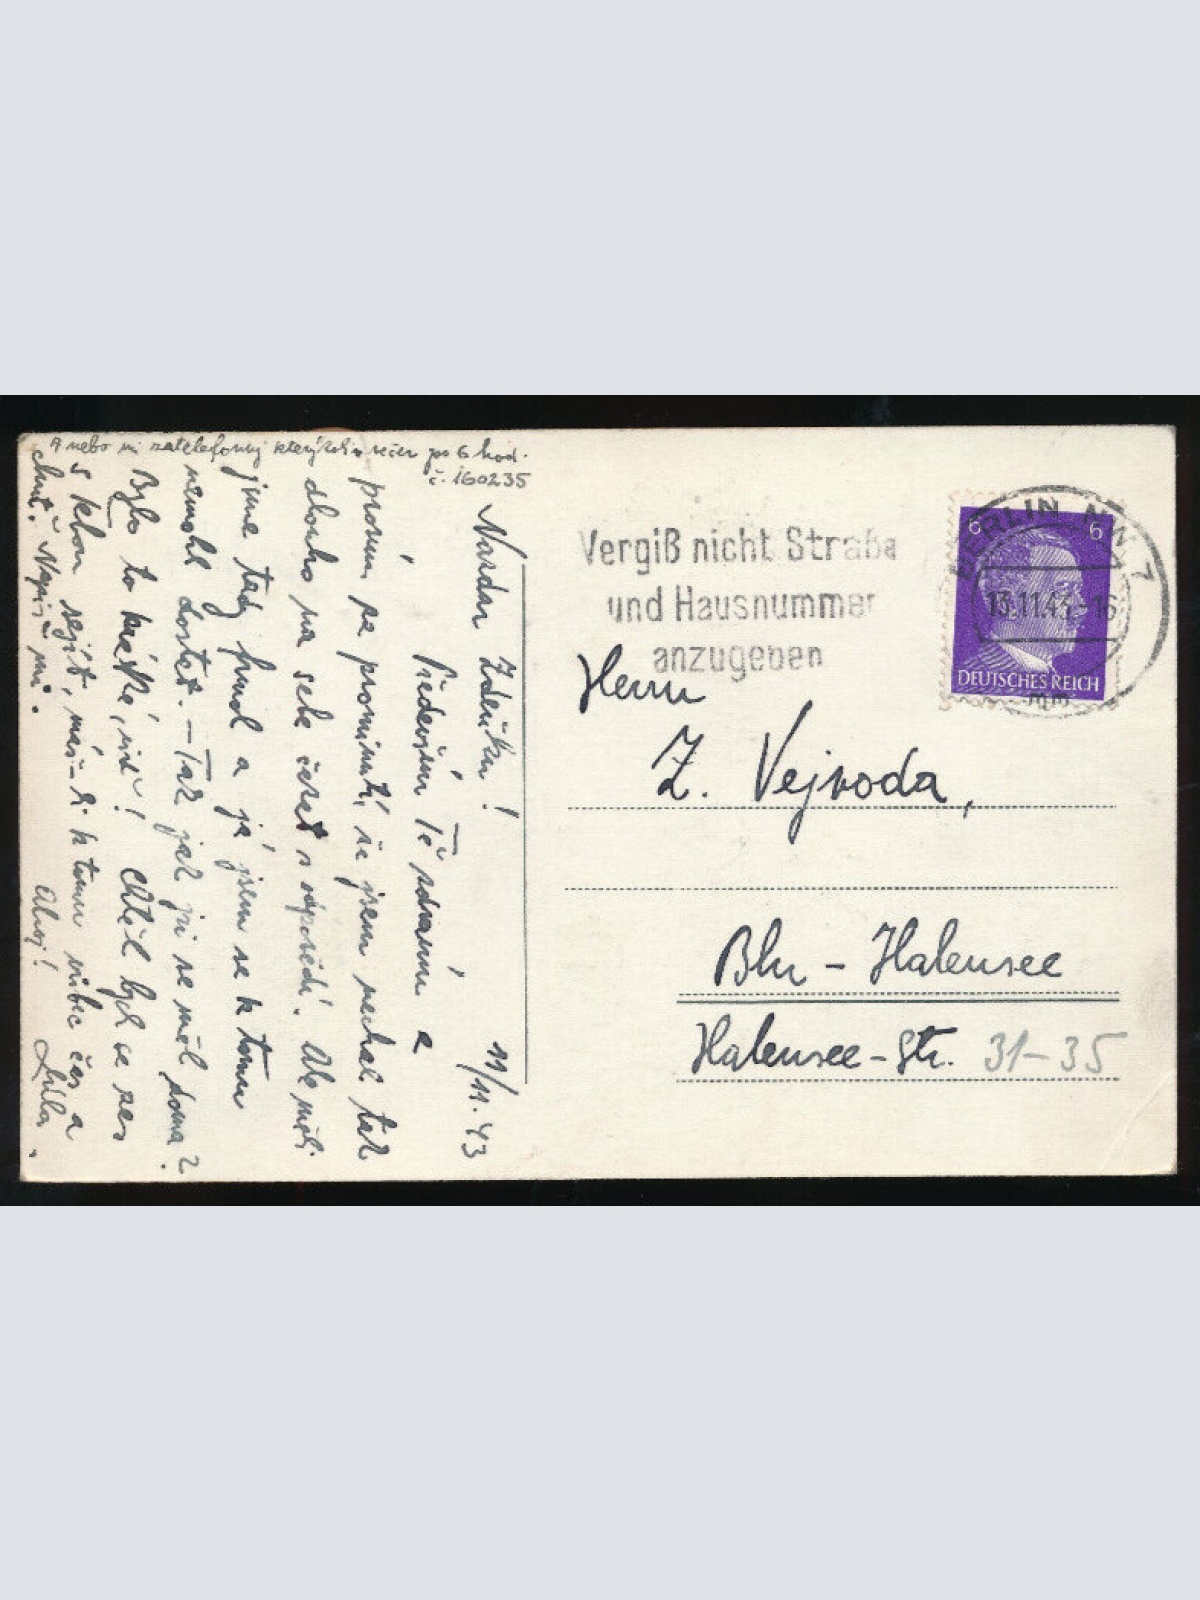 A nebo mi zatelefonuj kterýkoliv večer po 6 hod.
č. 160235
11/11. 43
Nazdar Zdeňku!
Předevšim Tě zdravím a
prosím za prominutí, že jsem nechal tak
dlouho na sebe čekat s odpovědí. Ale měli
jsme tady frmol a já jsem se k tomu
nemohl dostat. – Tak jak jsi se měl doma?
Bylo to krátké, viď! Chtěl bych se zas
s kým sejít, máš-li k tomu vůbec čas a
chuť. Napiš mi.
Ahoj!
Vergiß nicht Straße
und Hausnummer
anzugeben
BERLIN NW 7
13.11.43.-16
mm
6 6
DEUTSCHES REICH
Herrn
Z. Vejvoda,
Bln - Halensee
Halensee-Str. 31-35